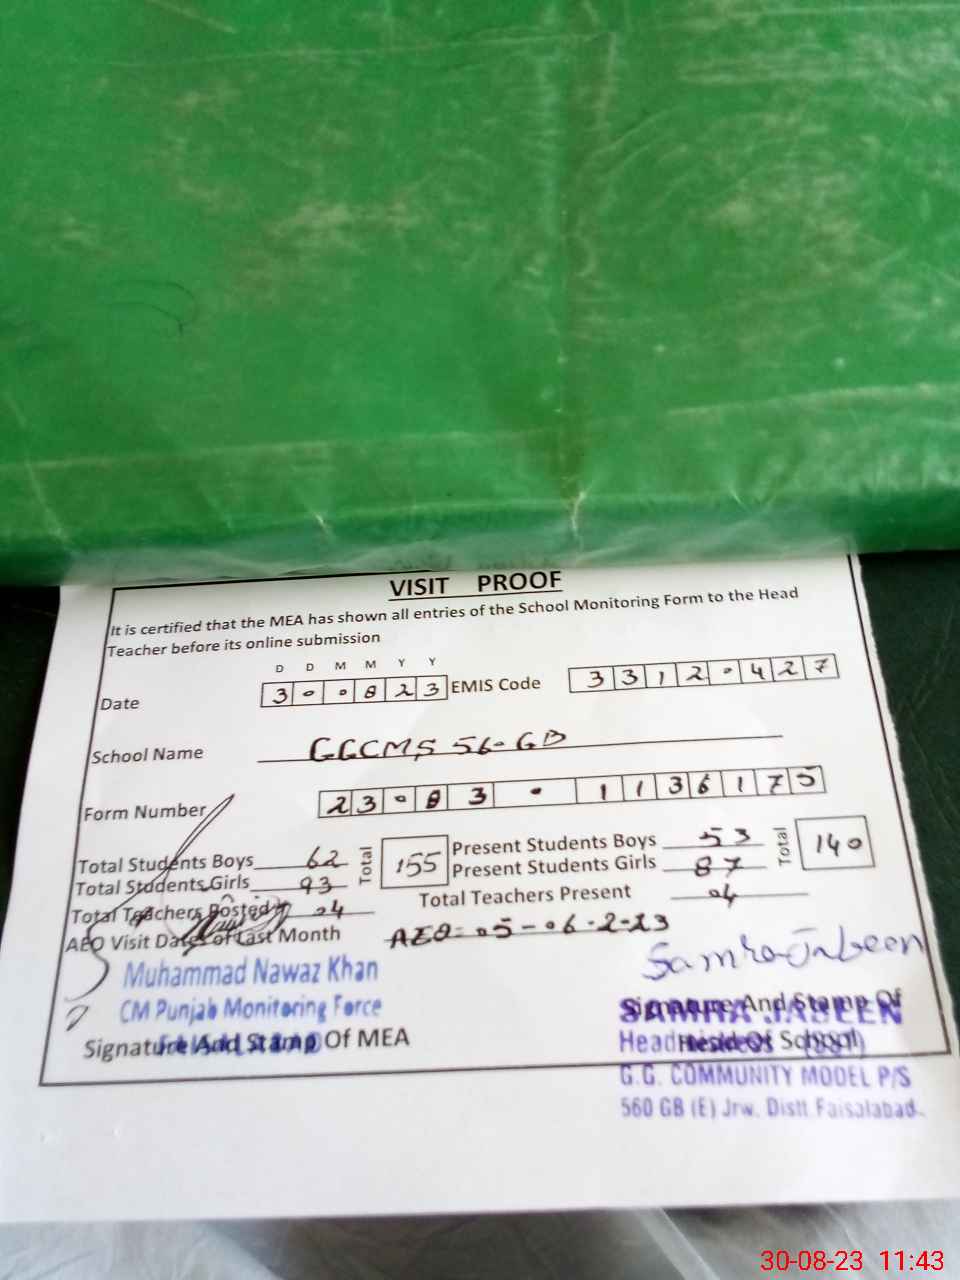 VISIT PROOF
It is certified that the MEA has shown all entries of the School Monitoring Form to the Head
Teacher before its online submission
D D M M Y Y
Date 30 08 23 EMIS Code 33120427
School Name GGCMS 560 GB
Form Number 23083 0 1136175
Total Students Boys 62 Total 155 Present Students Boys 53 Total 140
Total Students Girls 93 Present Students Girls 87
Total Teachers Posted 04 Total Teachers Present 04
AEO Visit Dates of Last Month AEO = 05-06-2023
Samra Jabeen
Muhammad Nawaz Khan
CM Punjab Monitoring Force
Signature And Stamp Of MEA
Signature And Stamp Of
Head Of School
SAMRA JABEEN
Headmistress
G.G. COMMUNITY MODEL P/S
560 GB (E) Jrw. Distt Faisalabad.
30-08-23 11:43